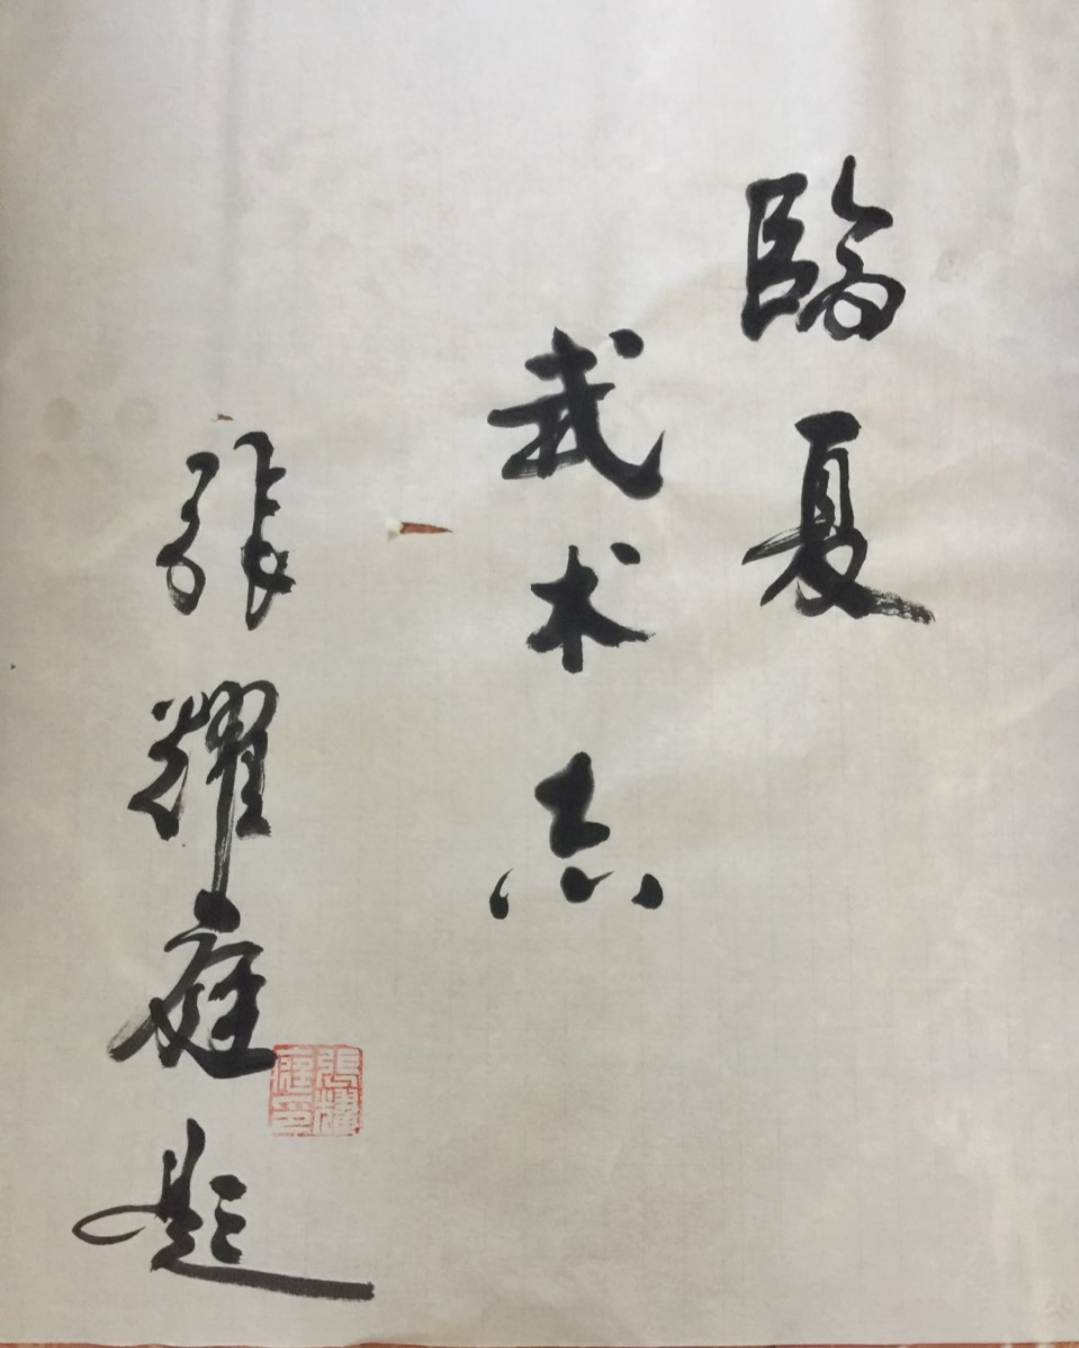 臨夏
武术志
張耀庭題
張耀庭印